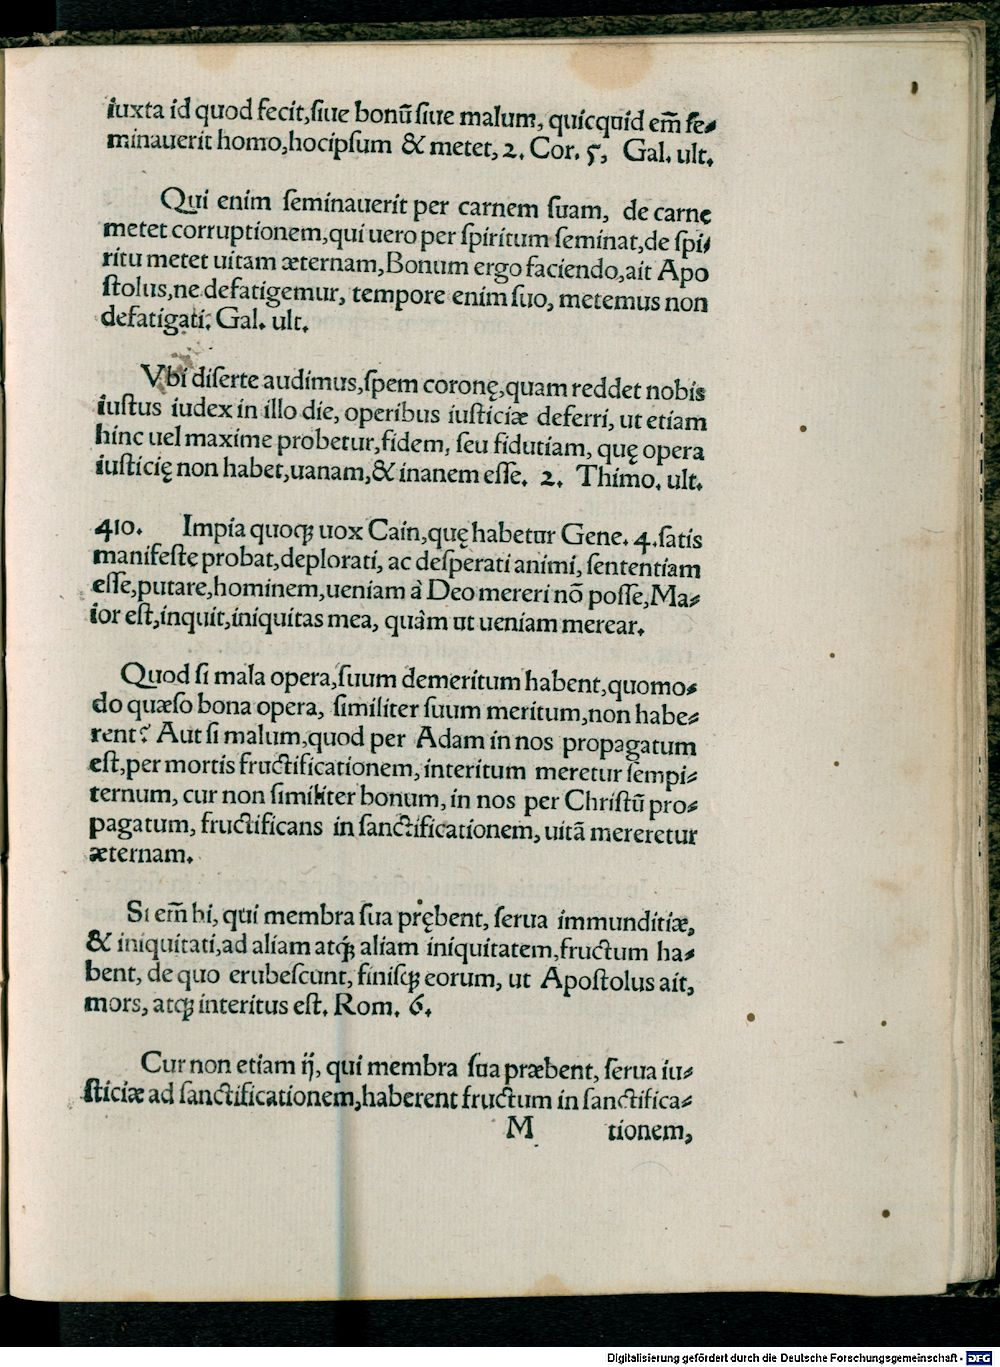 iuxta id quod fecit,ſiue bonũ ſiue malum, quicquid em̃ ſe⸗
minauerit homo,hocipſum & metet, 2. Cor. 5, Gal. ult.
Qui enim ſeminauerit per carnem ſuam, de carne
metet corruptionem,qui uero per ſpiritum ſeminat,de ſpi⸗
ritu metet uitam æternam,Bonum ergo faciendo,ait Apo
ſtolus,ne defatigemur, tempore enim ſuo, metemus non
defatigati. Gal. ult.
Vbi diſerte audimus,ſpem coronę,quam reddet nobis
iuſtus iudex in illo die, operibus iuſticiæ deferri, ut etiam
hinc uel maxime probetur,fidem, ſeu fidutiam, quę opera
iuſticię non habet,uanam,& inanem eſſe. 2. Thimo. ult.
410. Impia quoqꝫ uox Cain,quę habetur Gene. 4.ſatis
manifeſte probat,deplorati, ac deſperati animi, ſententiam
eſſe,putare,hominem,ueniam à Deo mereri nõ poſſe,Ma⸗
ior eſt,inquit,iniquitas mea, quàm ut ueniam merear.
Quod ſi mala opera,ſuum demeritum habent,quomo⸗
do quæſo bona opera, ſimiliter ſuum meritum,non habe⸗
rent? Aut ſi malum,quod per Adam in nos propagatum
eſt,per mortis fructificationem, interitum meretur ſempi⸗
ternum, cur non ſimiliter bonum, in nos per Chriſtũ pro⸗
pagatum, fructificans in ſanctificationem, uitã mereretur
æternam.
Si em̃ hi, qui membra ſua prębent, ſerua immunditiæ,
& iniquitati,ad aliam atqꝫ aliam iniquitatem,fructum ha⸗
bent, de quo erubeſcunt, finiſqꝫ eorum, ut Apoſtolus ait,
mors, atqꝫ interitus eſt. Rom. 6.
Cur non etiam ij, qui membra ſua præbent, ſerua iu⸗
ſticiæ ad ſanctificationem,haberent fructum in ſanctifica⸗
M tionem,
Digitalisierung gefördert durch die Deutsche Forschungsgemeinschaft - DFG